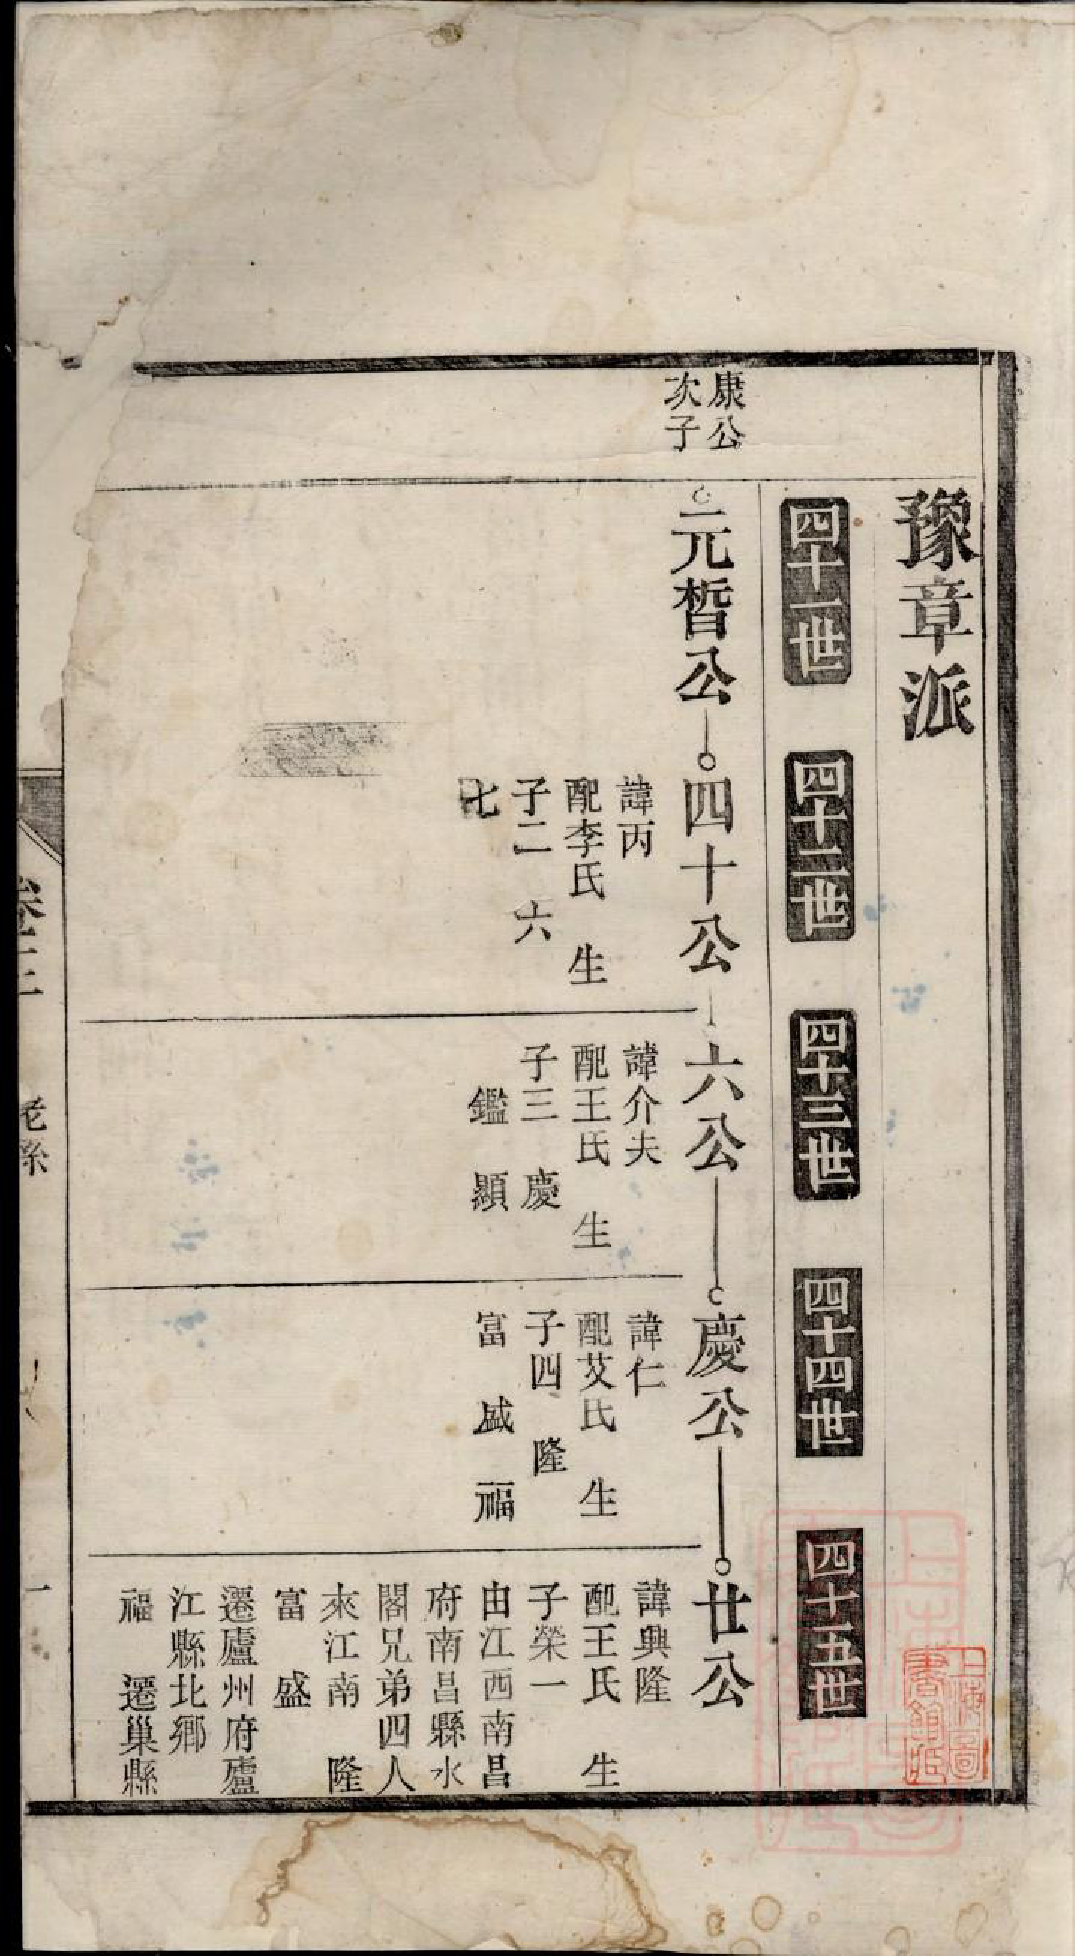 豫章派
四十一世
四十二世
四十三世
四十四世
四十五世
康公
次子
元晳公
四十公
諱丙
配李氏 生
子二 六
七
六公
諱介夫
配王氏 生
子三 慶
鑑 顯
慶公
諱仁
配艾氏 生
子四 隆
富 盛 福
廿公
諱興隆
配王氏 生
子榮一
由江西南昌
府南昌縣水
閣兄弟四人
來江南 隆
富 盛
遷廬州府廬
江縣北鄉
福 遷巢縣
卷三
一
上海圖
書館藏